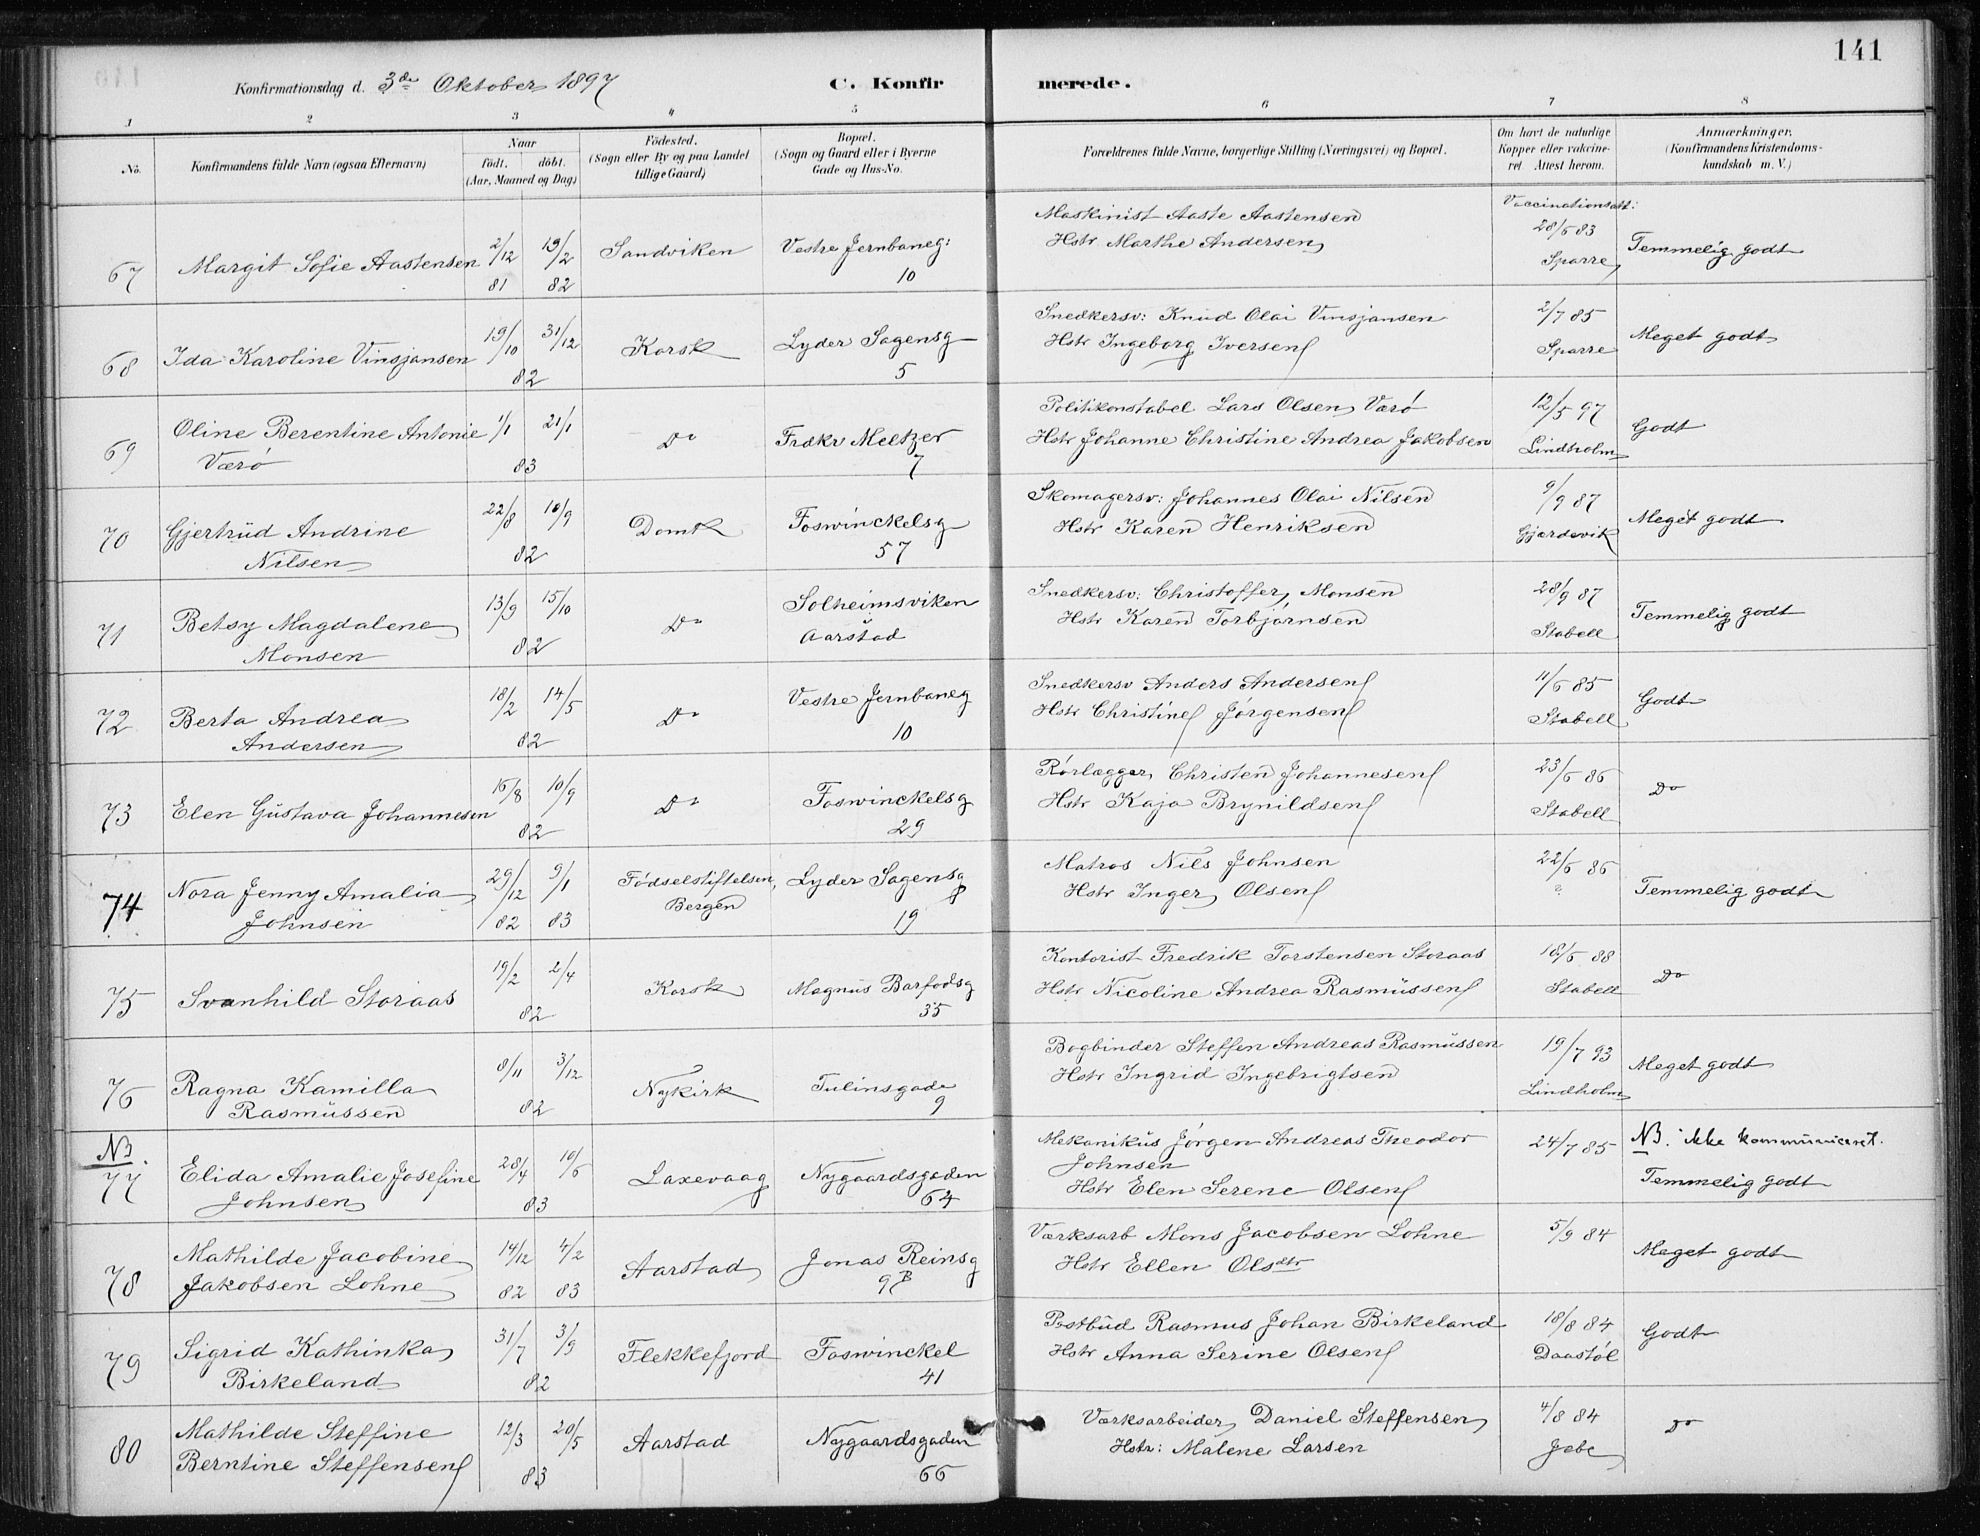 141
Konfirmationsdag d. 3de Oktober 1897 C. Konfirmerede.
1 2 3 4 5 6 7 8
No. Konfirmandens fulde Navn (ogsaa Efternavn) Naar født. døbt. (Aar, Maaned og Dag) Fødested. (Sogn eller By og paa Landet tillige Gaard) Bopæl. (Sogn og Gaard eller i Byerne Gade og Hus-No. Forældrenes fulde Navne, borgerlige Stilling (Næringsvei) og Bopæl. Om havt de naturlige Kopper eller vaccineret. Attest herom. Anmærkninger. (Konfirmandens Kristendomskundskab m. V.)
67 Margit Sofie Aastensen 2/12 81 19/2 82 Sandviken Vestre Jernbaneg: 10 Maskinist Aaste Aastensen Hstr Marthe Andersen Vaccinationsatt: 28/6 83 Sparre Temmelig godt
68 Ida Karoline Vinsjansen 19/10 31/12 82 Korsk Lyder Sagensg 5 Snedkersv: Knud Olai Vinsjansen Hstr Ingeborg Iversen 2/7 85 Sparre Meget godt
69 Oline Berentine Antonie Værø 1/1 21/1 83 Do Fredkr Meltzer 7 Politikonstabel Lars Olsen Værø Hstr Johanne Christine Andrea Jakobsen 12/5 97 Lindholm Godt
70 Gjertrud Andrine Nilsen 22/8 10/9 82 Domk Foswinckelsg 57 Skomagersv: Johannes Olai Nilsen Hstr Karen Henriksen 9/9 87 Gjerdevik Meget godt
71 Betsy Magdalene Monsen 13/9 15/10 82 Do Solheimsviken Aarstad Snedkersv: Christoffer Monsen Hstr Karen Torbjørnsen 28/9 87 Stabell Temmelig godt
72 Berta Andrea Andersen 18/2 14/5 82 Do Vestre Jernbaneg 10 Snedkersv Anders Andersen Hstr Christine Jørgensen 11/6 85 Stabell Godt
73 Elen Gustava Johannesen 16/8 10/9 82 Do Foswinckelsg 29 Rørlægger Christen Johannesen Hstr Kaja Brynildsen 23/6 86 Stabell Do
74 Nora Jenny Amalia Johnsen 29/12 82 9/1 83 Fødselstiftelsen, Bergen Lyder Sagensg 19 Matros Nils Johnsen Hstr Inger Olsen 22/6 86 ? Temmelig godt
75 Svanhild Storaas 19/2 2/4 82 Korsk Magnus Barfodsg 35 Kontorist Fredrik Torstensen Storaas Hstr Nicoline Andrea Rasmussen 18/6 88 Stabell Do
76 Ragna Kamilla Rasmussen 8/11 3/12 82 Nykirk Tulinsgade 9 Bogbinder Steffen Andreas Rasmussen Hstr Ingrid Ingebrigtsen 19/7 93 Lindholm Meget godt
NB. 77 Elida Amalie Josefine Johnsen 28/4 10/6 83 Laxevaag Nygaardsgaden 64 Mekanikus Jørgen Andreas Theodor Johnsen Hstr Elen Serene Olsen 24/7 85 NB. ikke kommuniceret. Temmelig godt
78 Mathilde Jacobine Jakobsen Lohne 14/12 82 4/2 83 Aarstad Jonas Reinsg 9B Værksarb Mons Jacobsen Lohne Hstr Ellen Olsdtr 5/9 84 Meget godt
79 Sigrid Kathinka Birkeland 31/7 3/9 82 Flekkefjord Foswinckel 41 Postbud Rasmus Johan Birkeland Hstr Anna Serine Olsen 18/8 84 Daastøl Godt
80 Mathilde Steffine Berntine Steffensen 12/3 20/5 83 Aarstad Nygaardsgaden 66 Værksarbeider Daniel Steffensen Hstr: Malene Larsen 4/8 84 Jebe Do